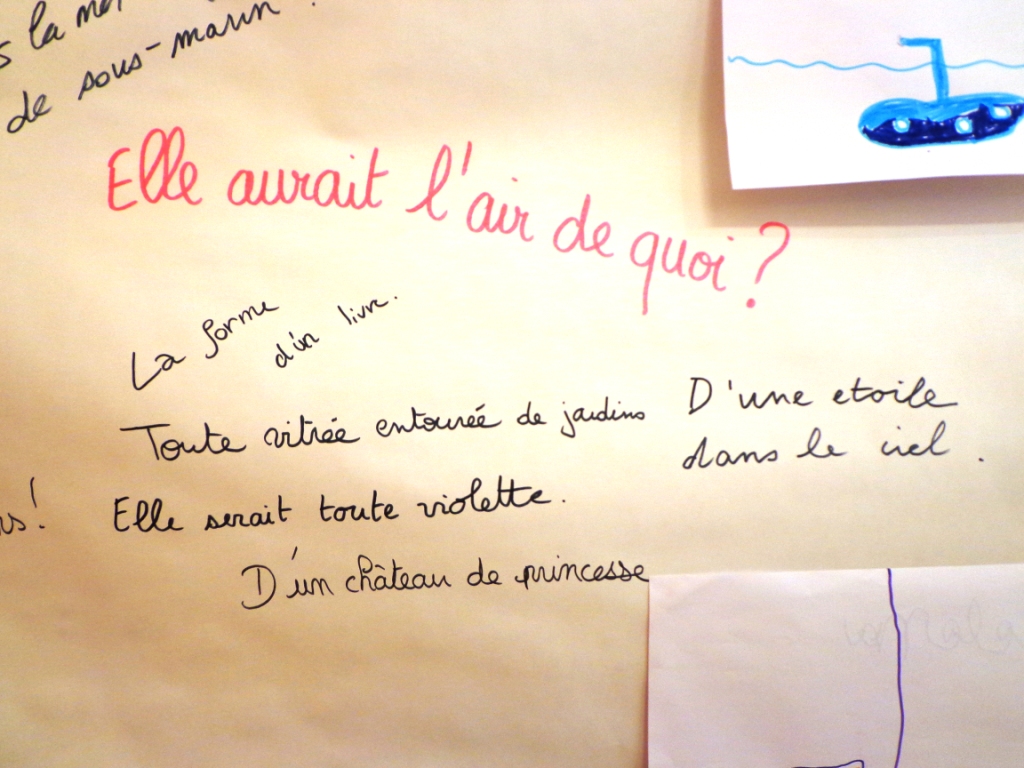 la mer
de sous-marin !
Elle aurait l'air de quoi ?
La forme
d'un livre.
Toute vitrée entourée de jardins
D'une etoile
dans le ciel .
Elle serait toute violette.
D'un château de princesse